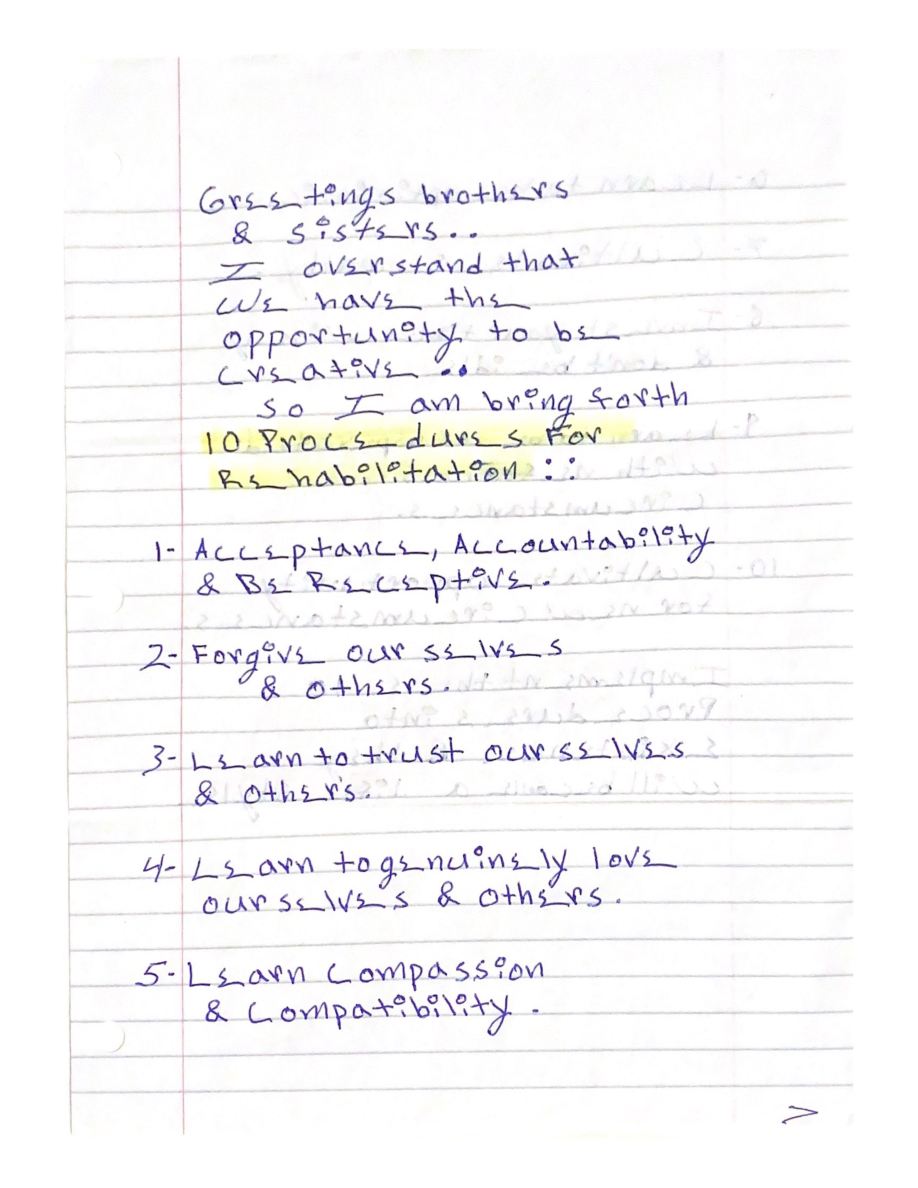 Greetings brothers
& sisters..
I overstand that
We have the
opportunity to be
creative ..
so I am bring forth
10 Procedures For
Rehabilitation :.
1- Acceptance, Accountability
& Be Receptive.
2- Forgive ourselves
& others.
3- Learn to trust ourselves
& other's.
4- Learn to genuinely love
ourselves & others.
5- Learn Compassion
& Compatibility.
>